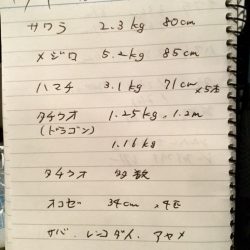 サワラ 2.3kg 80cm
メジロ 5.2kg 85cm
ハマチ 3.1kg 71cm ×5本
タチウオ 1.25kg, 1.2m
(ドラゴン)
1.16kg
タチウオ 多数
オコゼ 34cm ×4匹
サバ、レンコダイ、アヤメ